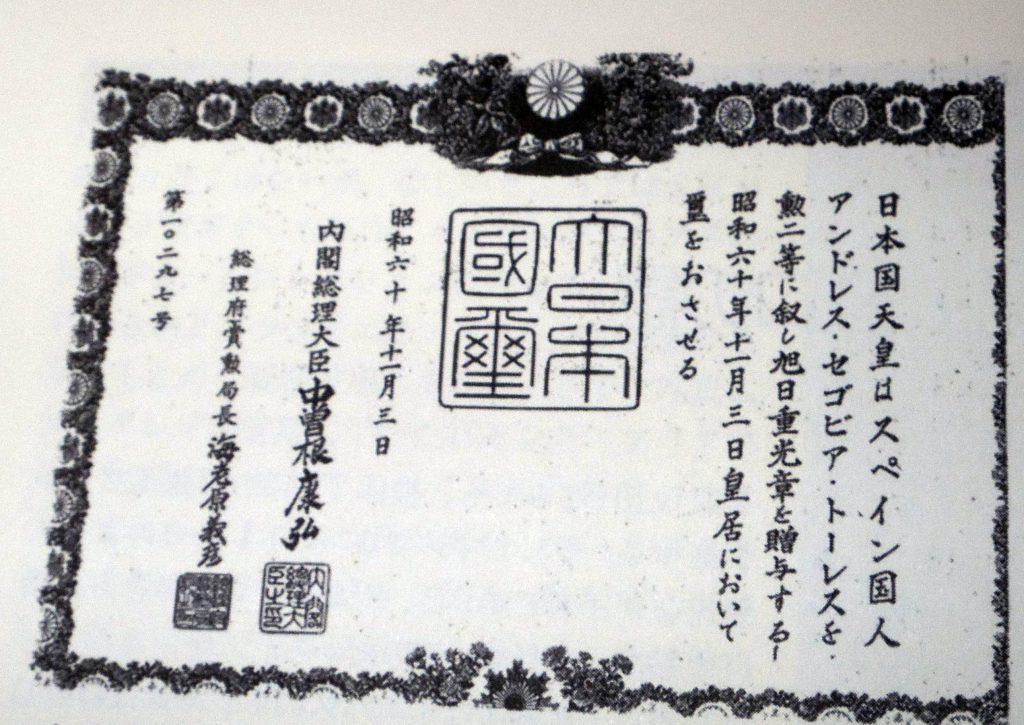 日本国天皇はスペイン国人
アンドレス・セゴビア・トーレスを
勲二等に叙し旭日重光章を贈与する
昭和六十年十一月三日皇居において
璽をおさせる
大日本
國璽
昭和六十年十一月三日
内閣総理大臣 中曽根康弘
内閣
総理大
臣之印
総理府賞勲局長 海老原義彦
第一〇二九七号